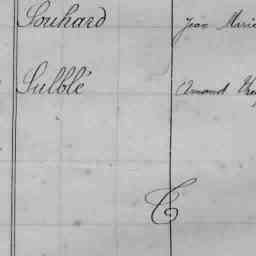 Souhard Jean Marie
Sulblé Amand
T